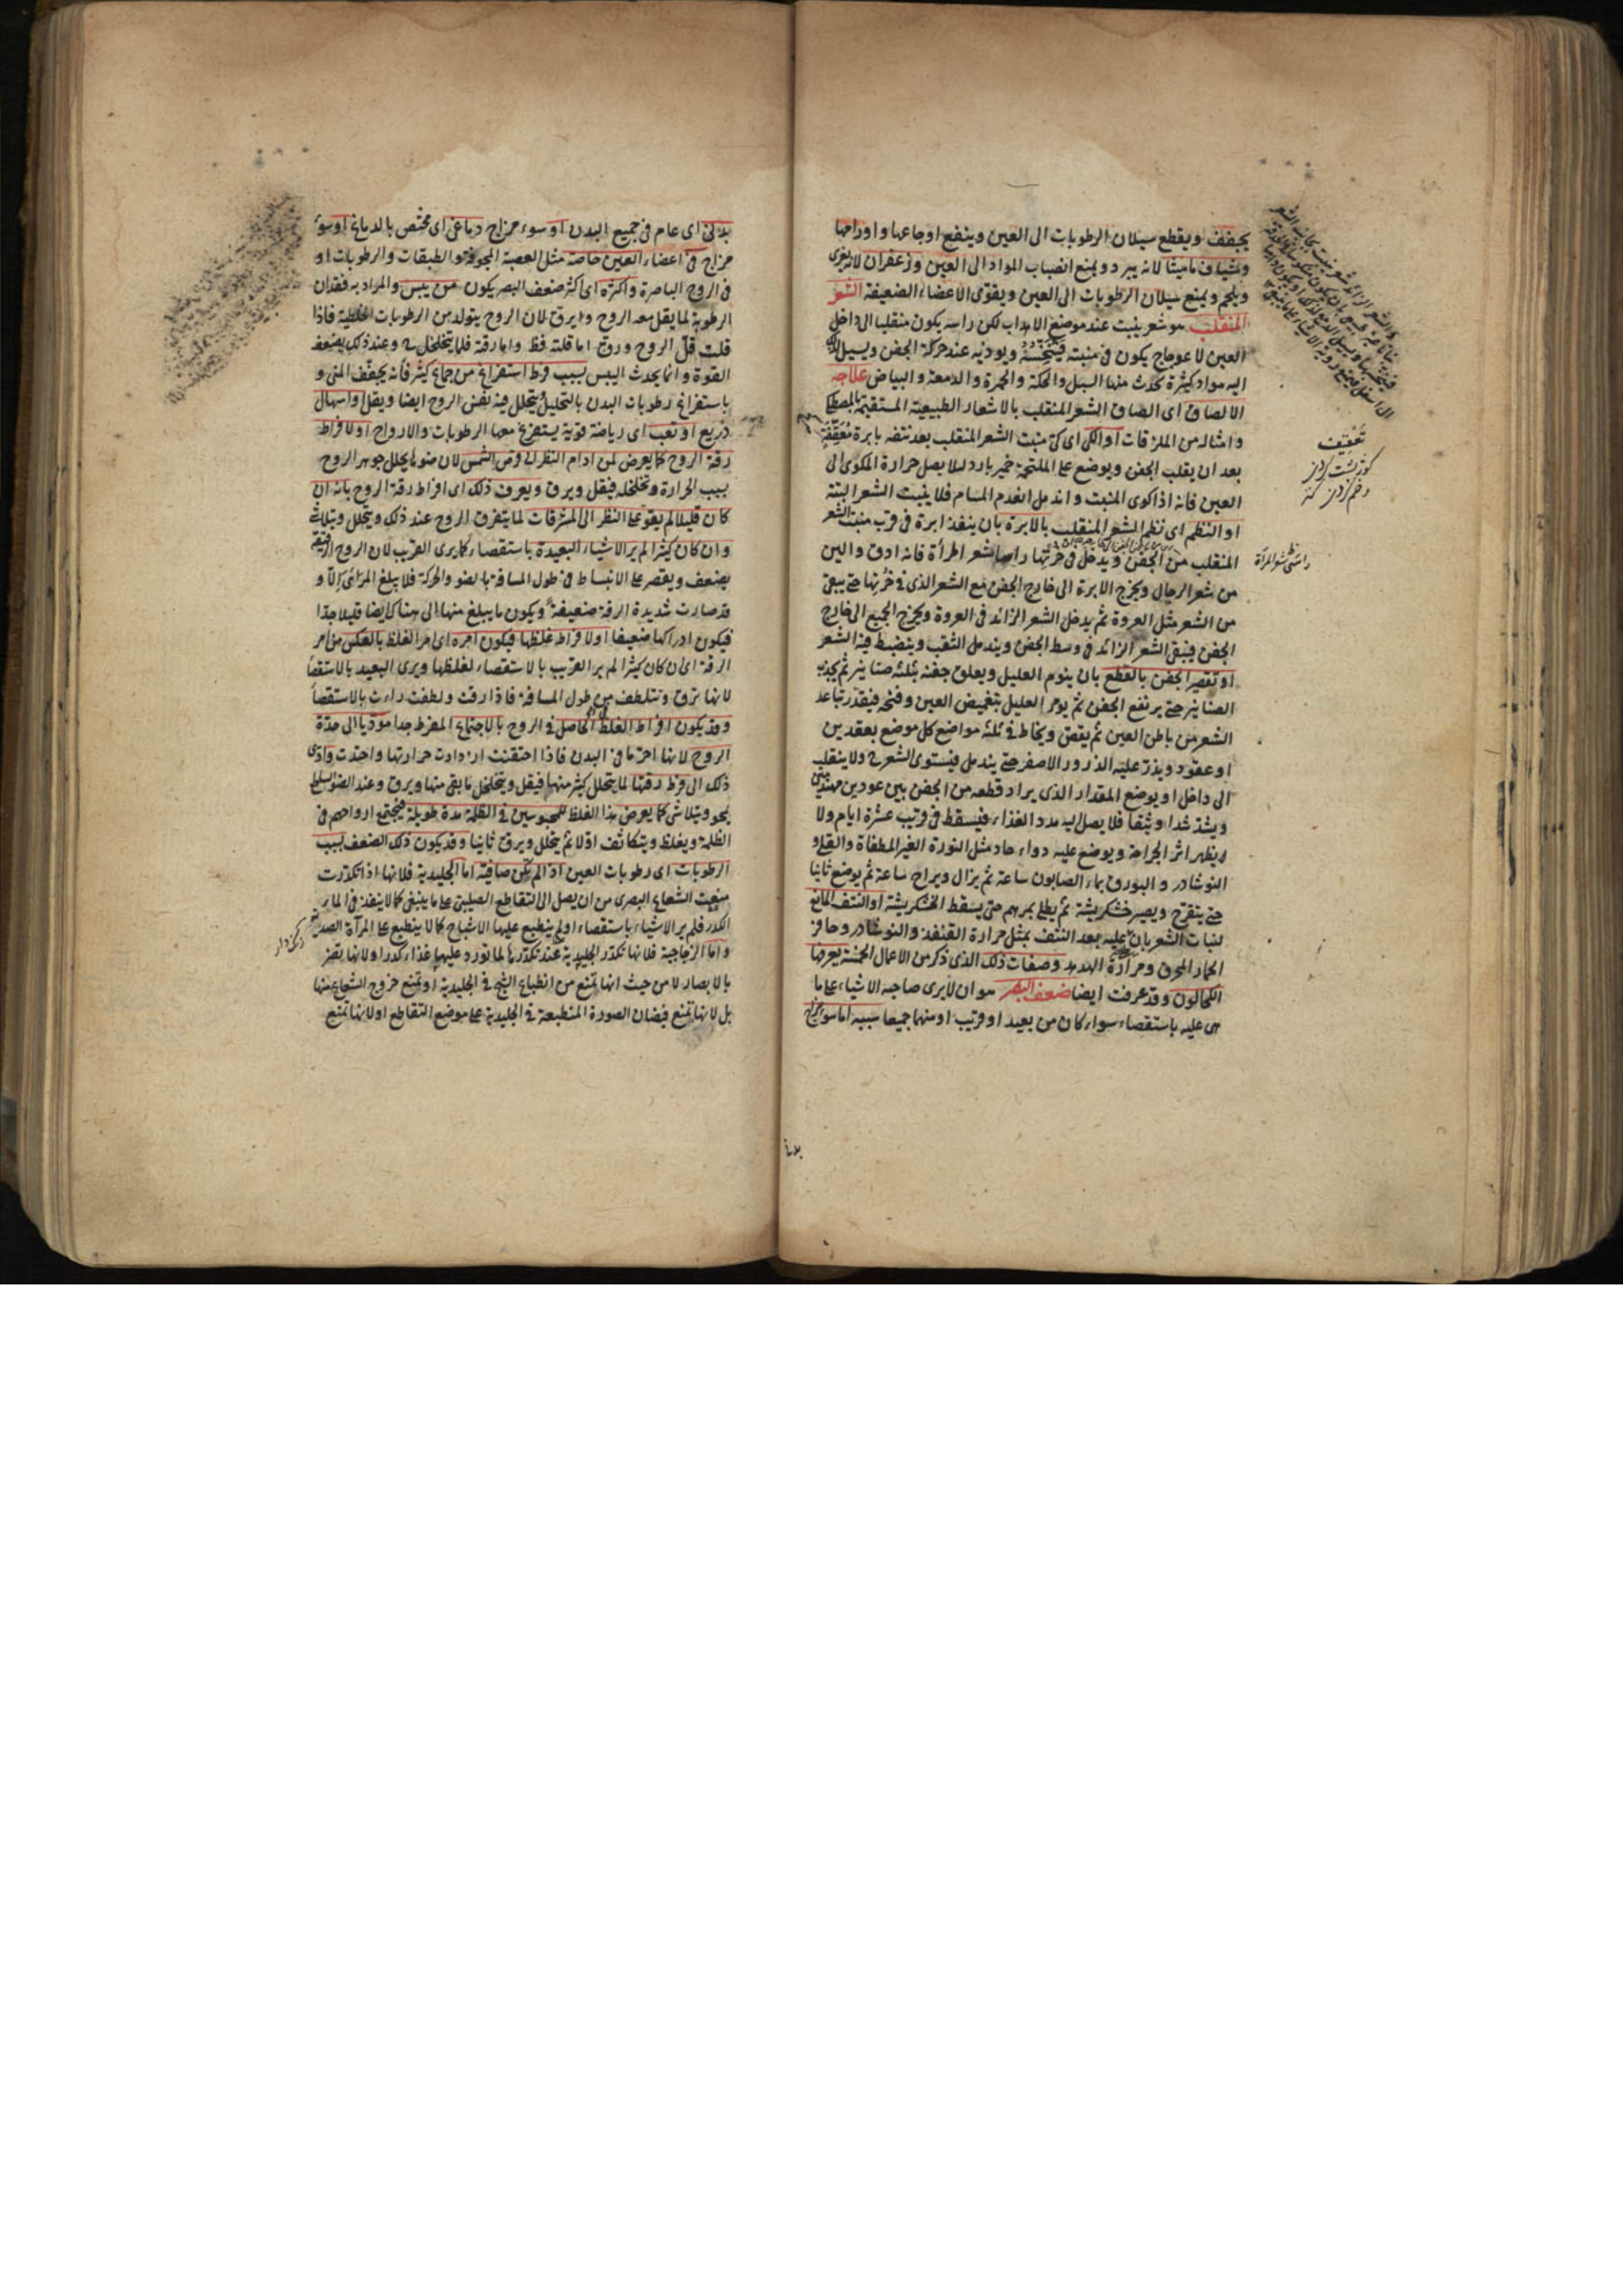 يجفف ويقطع سيلان الرطوبات الى العين وينفع اوجاعها واورامها
وشياف ماميثا لانه يبرد ويمنع انصباب المواد الى العين وزعفران لانه يقوى
ويلحم ويمنع سيلان الرطوبات الى العين ويقوى الاعضاء الضعيفة الشعر
المنقلب هو شعر ينبت عند موضع الاهداب لكن راسه يكون منقلبا الى داخل
العين لاعوجاج يكون فى منبته فينخسه ويوذيه عند حركة الجفن ويسيل
اليه مواد كثيرة تحدث منها السبل والحكة والحمرة والدمعة والبياض علاجه
الالصاق اى الصاق الشعر المنقلب بالاشعار الطبيعية المستقيمة بالمصطكى
وامثاله من الملزقات او الكى اى كى منبت الشعر المنقلب بعد نتفه بابرة معقّفة
بعد ان يقلب الجفن ويوضع على الملتحمة خمير بارد لئلا يصل حرارة المكوى الى
العين فانه اذا كوى المنبت واندمل انعدم المسام فلا ينبت الشعر البتة
او النظم اى نظم الشعر المنقلب بالابرة بان ينفذ ابرة فى قرب منبت الشعر
المنقلب من الجفن ويدخل فى خرتها راسا شعر امرأة فانه ادق والين
من شعر الرجال ويخرج الابرة الى خارج الجفن مع الشعر الذى فى خرتها حتى يبقى
من الشعر مثل العروة ثم يدخل الشعر الزائد فى العروة ويخرج الجميع الى خارج
الجفن فيبقى الشعر الزائد فى وسط الجفن ويندمل الثقب وينضبط فيه الشعر
او تقصير الجفن بالقطع بان ينوم العليل ويعلق جفنه بثلثة صنانير ثم يجذب
الصنانير حتى يرتفع الجفن ثم يومر العليل بتغميض العين وفتحه فيقدر تباعد
الشعر من باطن العين ثم يقص ويخاط فى ثلثة مواضع كل موضع بعقدين
او عقود ويذر عليه الذرور الاصفر حتى يندمل فيستوى الشعر ح ولا ينقلب
الى داخل او يوضع المقدار الذى يراد قطعه من الجفن بين عودين
ويشد شدا وثيقا فلا يصل اليه مدد الغذاء فيسقط فى قريب عشرة ايام ولا
يظهر اثر الجراحة ويوضع عليه دواء حاد مثل النورة الغير المطفاة والقلى و
النوشادر والبورق بماء الصابون ساعة ثم يزال ويراح ساعة ثم يوضع ثانيا
حتى يتقرح ويصير خشكريشة ثم يطلى بمرهم حتى يسقط الخشكريشة او النتف المانع
لنبات الشعر بان عليه بعد النتف بمثل مرارة القنفذ والنوشادر وحافر
الحمار المحرق ومرارة الهدهد وصفات ذلك الذى ذكر من الاعمال الخمسة يعرفها
الكحالون وقد عرفت ايضا ضعف البصر هو ان لا يرى صاحبه الاشياء على ما
هى عليه باستقصاء سواء كان من بعيد او قريب او منهما جميعا سببه اما سوء مزاج
تعقيف
كوز پشت كردن
بدنى اى عام فى جميع البدن او سوء مزاج دماغى اى مختص بالدماغ او سوء
مزاج فى اعضاء العين خاصة مثل العصبة المجوفة والطبقات والرطوبات او
فى الروح الباصرة واكثره اى اكثر ضعف البصر يكون من يبس والمراد به فقدان
الرطوبة لما يقل معه الروح ويرق لان الروح يتولد من الرطوبات الخلطية فاذا
قلت قل الروح ورق اما قلته فظ واما رقته فلما يتخلخل ح وعند ذلك يضعف
القوة وانما يحدث اليبس بسبب فرط استفراغ من جماع كثير فانه يجفف المنى و
باستفراغ رطوبات البدن بالتحليل ويتحلل فيه نفس الروح ايضا ويقل او اسهال
ذريع او تعب اى رياضة قوية يستفرغ معها الرطوبات والارواح او لافراط
رقة الروح كما يعرض لمن ادام النظر الى قرص الشمس لان ضوءها يحلل جوهر الروح
بسبب الحرارة وتخلخله فيقل ويرق ويعرف ذلك اى افراط رقة الروح بانه ان
كان قليلا لم يقو على النظر الى المشرقات لما يتفرق الروح عند ذلك ويتحلل ويتلاشى
وان كان كثيرا لم ير الاشياء البعيدة باستقصاء كما يرى القريب لان الروح الرقيقة
يضعف ويقصر على الانبساط فى طول المسافة بالضوء والحركة فلا يبلغ المرائى الا و
قد صارت شديدة الرقة ضعيفة ويكون ما يبلغ منها الى هناك ايضا قليلا جدا
فيكون ادراكها ضعيفا او لافراط غلظها فيكون امره اى امر الغلظ بالعكس من امر
الرقة اى ان كان كثيرا لم ير القريب بالاستقصاء لغلظها ويرى البعيد بالاستقصا
لانها ترق وتتلطف من طول المسافة فاذا رقت ولطفت راءت بالاستقصا
وقد يكون افراط الغلظ الحاصل فى الروح بالاجتماع المفرط جدا مودّيا الى حدّة
الروح لانها احر ما فى البدن فاذا احتقنت ازدادت حرارتها واحتدت وادّى
ذلك الى فرط رقتها لما يتحلل كثير منها فيقل ويتخلخل ما بقى منها ويرق وعند الضوء الساطع
يمحو ويتلاشى كما يعرض هذا الغلظ للمحبوسين فى الظلمة مدة طويلة فيجتمع ارواحهم فى
الظلمة ويغلظ ويتكاثف اولا ثم يتحلل ويرق ثانيا وقد يكون ذلك الضعف بسبب
الرطوبات اى رطوبات العين اذا لم تكن صافية اما الجليدية فلانها اذا تكدرت
منعت الشعاع البصرى من ان يصل الى التقاطع الصليبى على ما ينبغى كما لا ينفذ فى الماء
الكدر فلم ير الاشياء باستقصاء او لم ينطبع عليها الاشباح كما لا ينطبع على المرآة الصدئة
واما الزجاجية فلانها تكدر الجليدية عند تكدرها لما تورد عليها غذاء كدرا او لانها تضر
بالابصار لا من حيث انها تمنع من انطباع الشبح فى الجليدية او تمنع خروج الشعاع منها
بل لانها تمنع فيضان الصورة المنطبعة فى الجليدية على موضع التقاطع او لانها تمنع